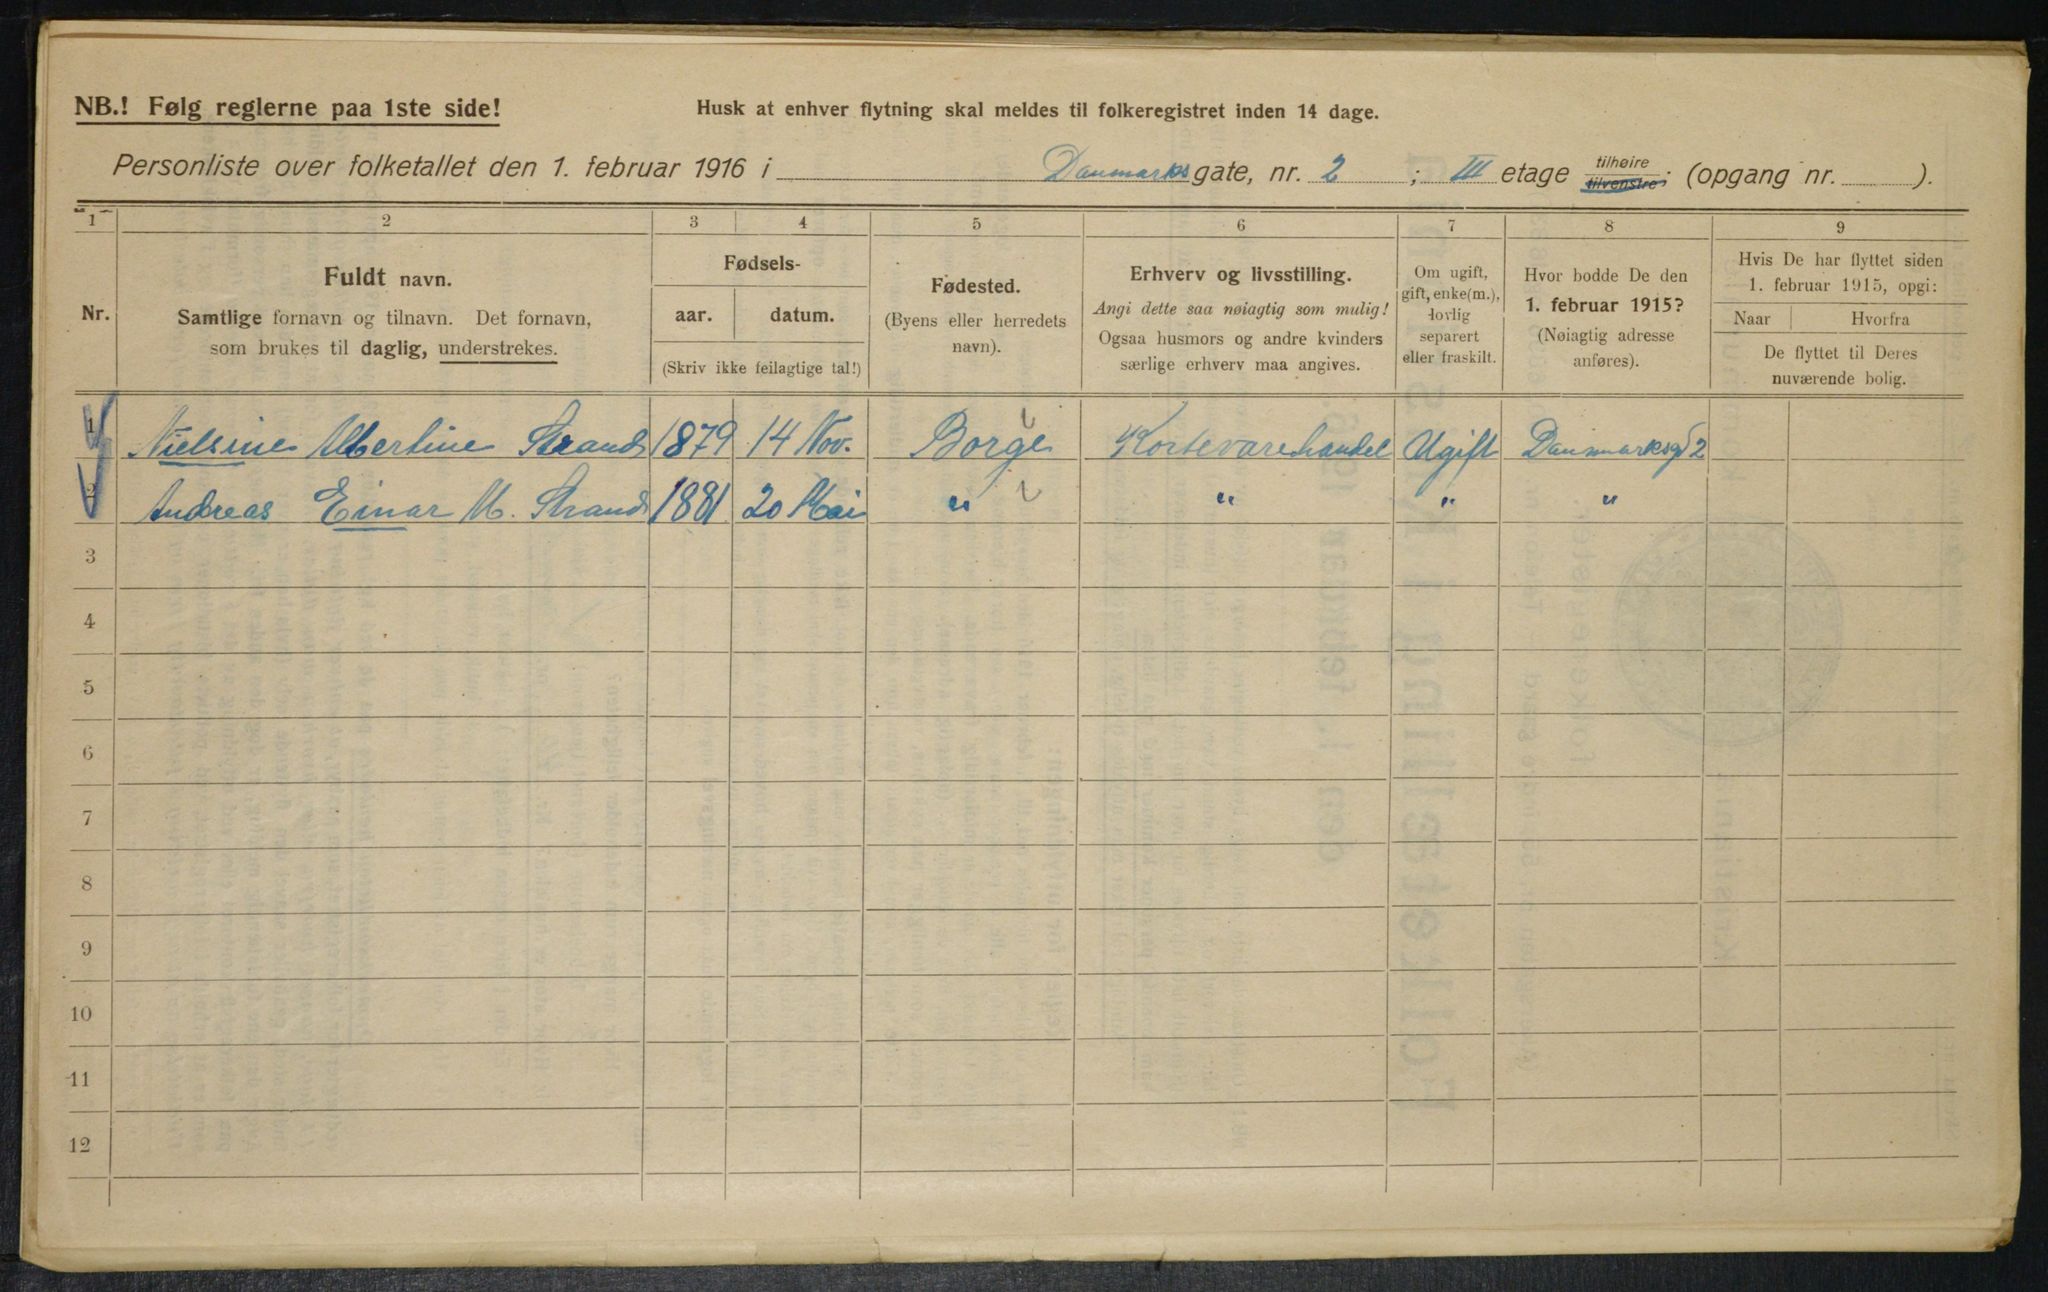 NB.! Følg reglerne paa 1ste side!
Husk at enhver flytning skal meldes til folkeregistret inden 14 dage.
Personliste over folketallet den 1. februar 1916 i Danmarks gate, nr. 2 ; III etage tilhøire tilvenstre; (opgang nr. ).
1 2 3 4 5 6 7 8 9
Nr.
Fuldt navn.
Samtlige fornavn og tilnavn. Det fornavn,
som brukes til daglig, understrekes.
Fødsels-
aar. datum.
(Skriv ikke feilagtige tal!)
Fødested.
(Byens eller herredets
navn).
Erhverv og livsstilling.
Angi dette saa nøiagtig som mulig!
Ogsaa husmors og andre kvinders
særlige erhverv maa angives.
Om ugift,
gift, enke(m.),
lovlig
separert
eller fraskilt.
Hvor bodde De den
1. februar 1915?
(Nøiagtig adresse
anføres).
Hvis De har flyttet siden
1. februar 1915, opgi:
Naar Hvorfra
De flyttet til Deres
nuværende bolig.
1 Nielsine Albertine Strand 1879 14 Nov. Borge Kortevarehandel Ugift Danmarksgt 2
2 Andreas Einar M. Strand 1881 20 Mai " " " "
3
4
5
6
7
8
9
10
11
12